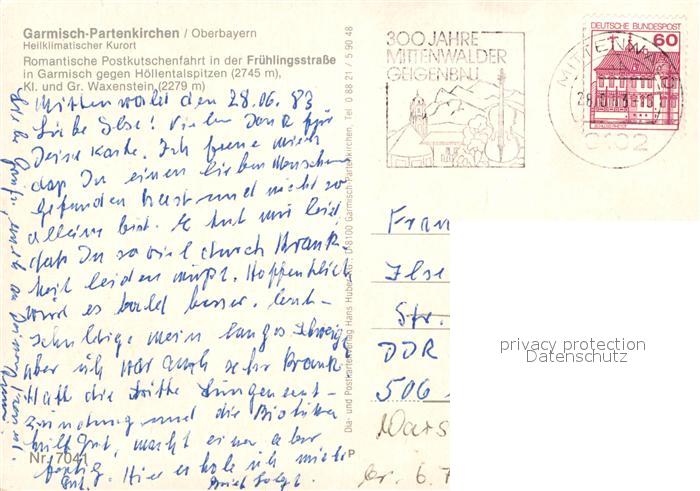 Garmisch-Partenkirchen / Oberbayern
Heilklimatischer Kurort
Romantische Postkutschenfahrt in der Frühlingsstraße
in Garmisch gegen Höllentalspitzen (2745 m),
Kl. und Gr. Waxenstein (2279 m)
Mittenwald den 28.06.83
Liebe Ilse! Vielen Dank für
Deine Karte. Ich freue mich
daß Du einen lieben Menschen
gefunden hast und nicht so
allein bist. Es tut mir leid
daß Du so viel durch Krank-
heit leiden mußt. Hoffentlich
wird es bald besser. Ent-
schuldige mein langes Schweig
aber ich war auch sehr krank
Hatte die dritte Lungenent-
zündung und die
hilft gut, macht einen aber
fertig. Hier erhole ich mich
gut. Brief folgt.
Nr. 7041
Dia- und Postkartenverlag Hans Huber D-8100 Garmisch-Partenkirchen Tel. 0 88 21 / 5 90 48
P
300 JAHRE
MITTENWALDER
GEIGENBAU
DEUTSCHE BUNDESPOST
60
MITTENWALD
8102
Ilse
Str.
DDR
506
privacy protection
Datenschutz